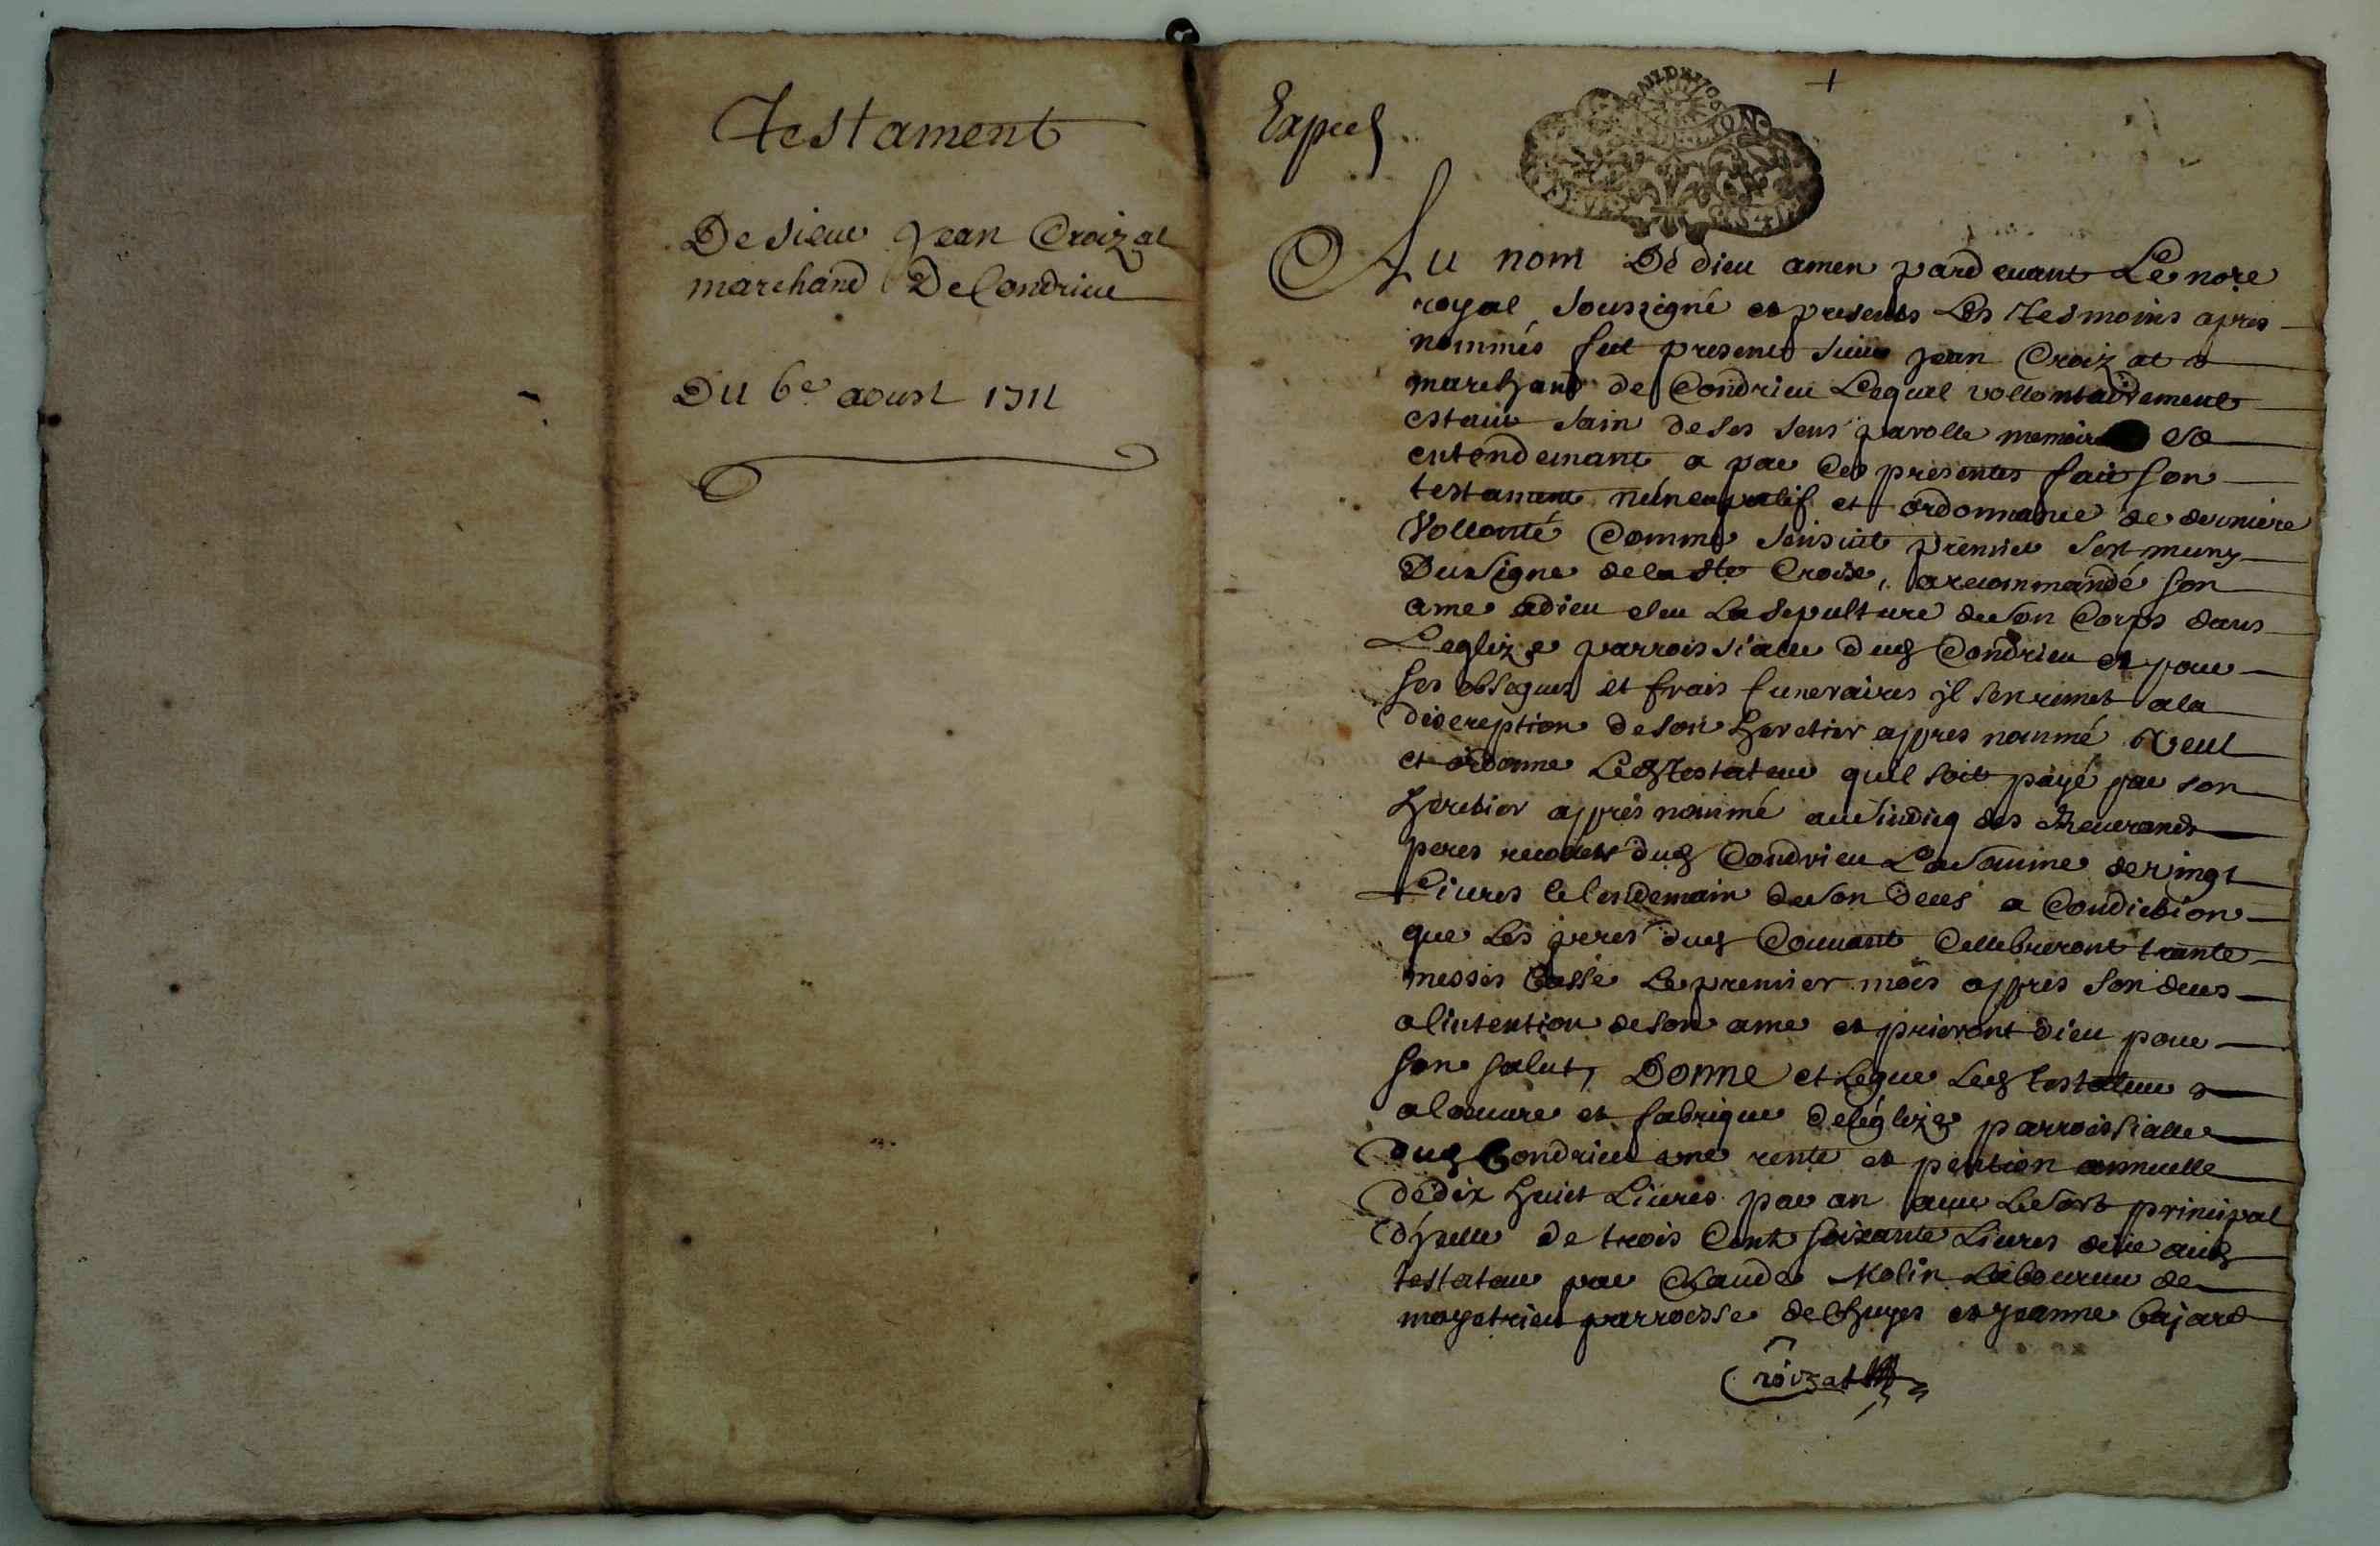 Testament
De sieur Jean Croizat
marchand De Condrieu
Du 6e aoust 1711
Exped
Au nom De dieu amen pardevant Le nore
royal soussigné et presents Les Tesmoins apres
nommés fut present sieur Jean Croizat
marchand de Condrieu Lequel vollontairement
estant sain de ses sens parolle memoire et
entendemant a par Ces presentes fait son
testament nuncupatif et ordonnance de derniere
Vollonté Comme sensuit premier sest muny
Du signe de la Ste Croix, a recommandé son
ame a dieu eleu La sepulture de son Corps dans
Leglize parroissialle dud Condrieu et pour
ses obseques et frais funeraires il sen remet a la
discreption de son heretier appres nommé Veut
et ordonne Led testateur quil soit payé par son
heretier appres nommé au sindicq des Reverands
peres recolets dud Condrieu La somme de vingt
Livres le lendemain de son deces a Condiction
que Les peres dud Couvant Cellebreront trante
messes basse Le premier mois appres son deces
a lintention de son ame et prieront dieu pour
son salut, Donne et Legue Led testateur
a loeuvre et fabrique de léglize parroissialle
dud Condrieu une rente et pention annuelle
de dix huict Livres par an avec Le sort principal
dyzelle de trois Cent soixante Livres deüe aud
testateur par Claude Molin Laboureur de
mayetrieu parroisse de Chuyes et Jeanne bajard
Croizat